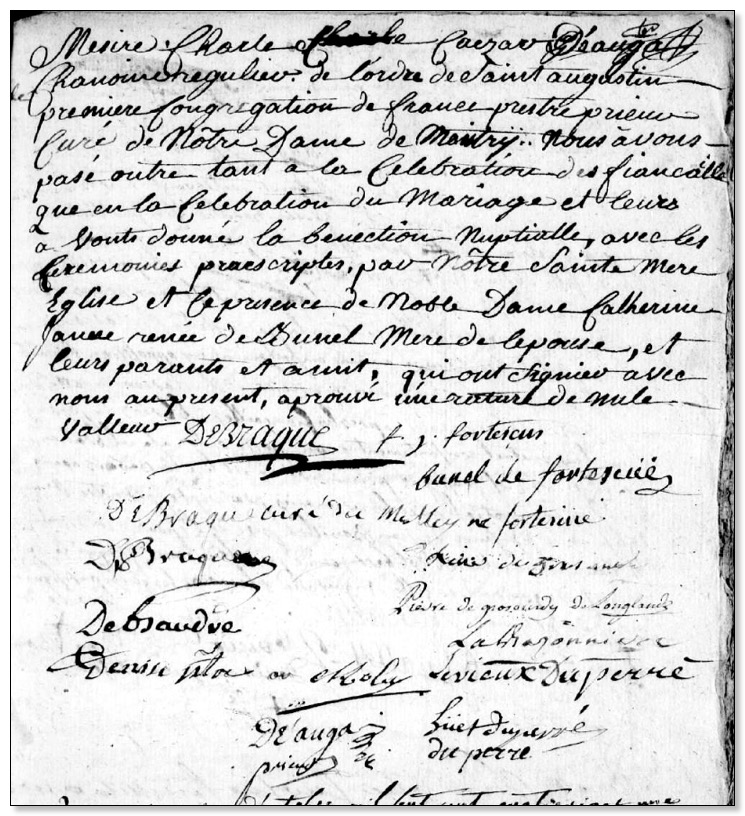 Mesire Charle Caezar Deauga
Chanoine regulier de l'ordre de Saint augustin
premiere Congregation de france prestre prieur
Curé de Nôtre Dame de Mentry.. Nous àvons
pasé outre tant a la Celebration des fiancaille
que en la Celebration du Mariage et leurs
a Vonts donné la benection Nuptialle, avec les
Ceremonies praescriptes, par Nôtre Sainte Mere
Eglise et le presence de Noble Dame Catherine
Janne renée de Bunel Mere de lepouse, et
leurs parants et amit, qui ont Signier avec
nous au present, aprouvé une rature de nule
Valleur DeBraque J. fortescus
bunel de fortescüe
De Braque curé de ne fortescue
D Braque
Pierre de grosourdy de Longlands
Debraudre La Bazonniere
Denise Levieux Duperré
De'auga hüet duperré
prieur du perre